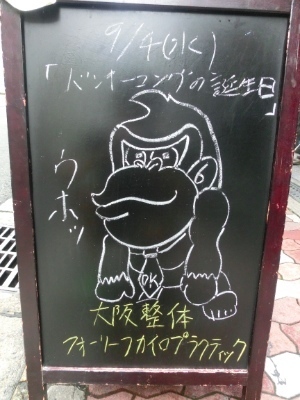 9/4(水)
「ドンキーコングの誕生日」
ウホッ
DK
大阪整体
フォーリーフカイロプラクティック